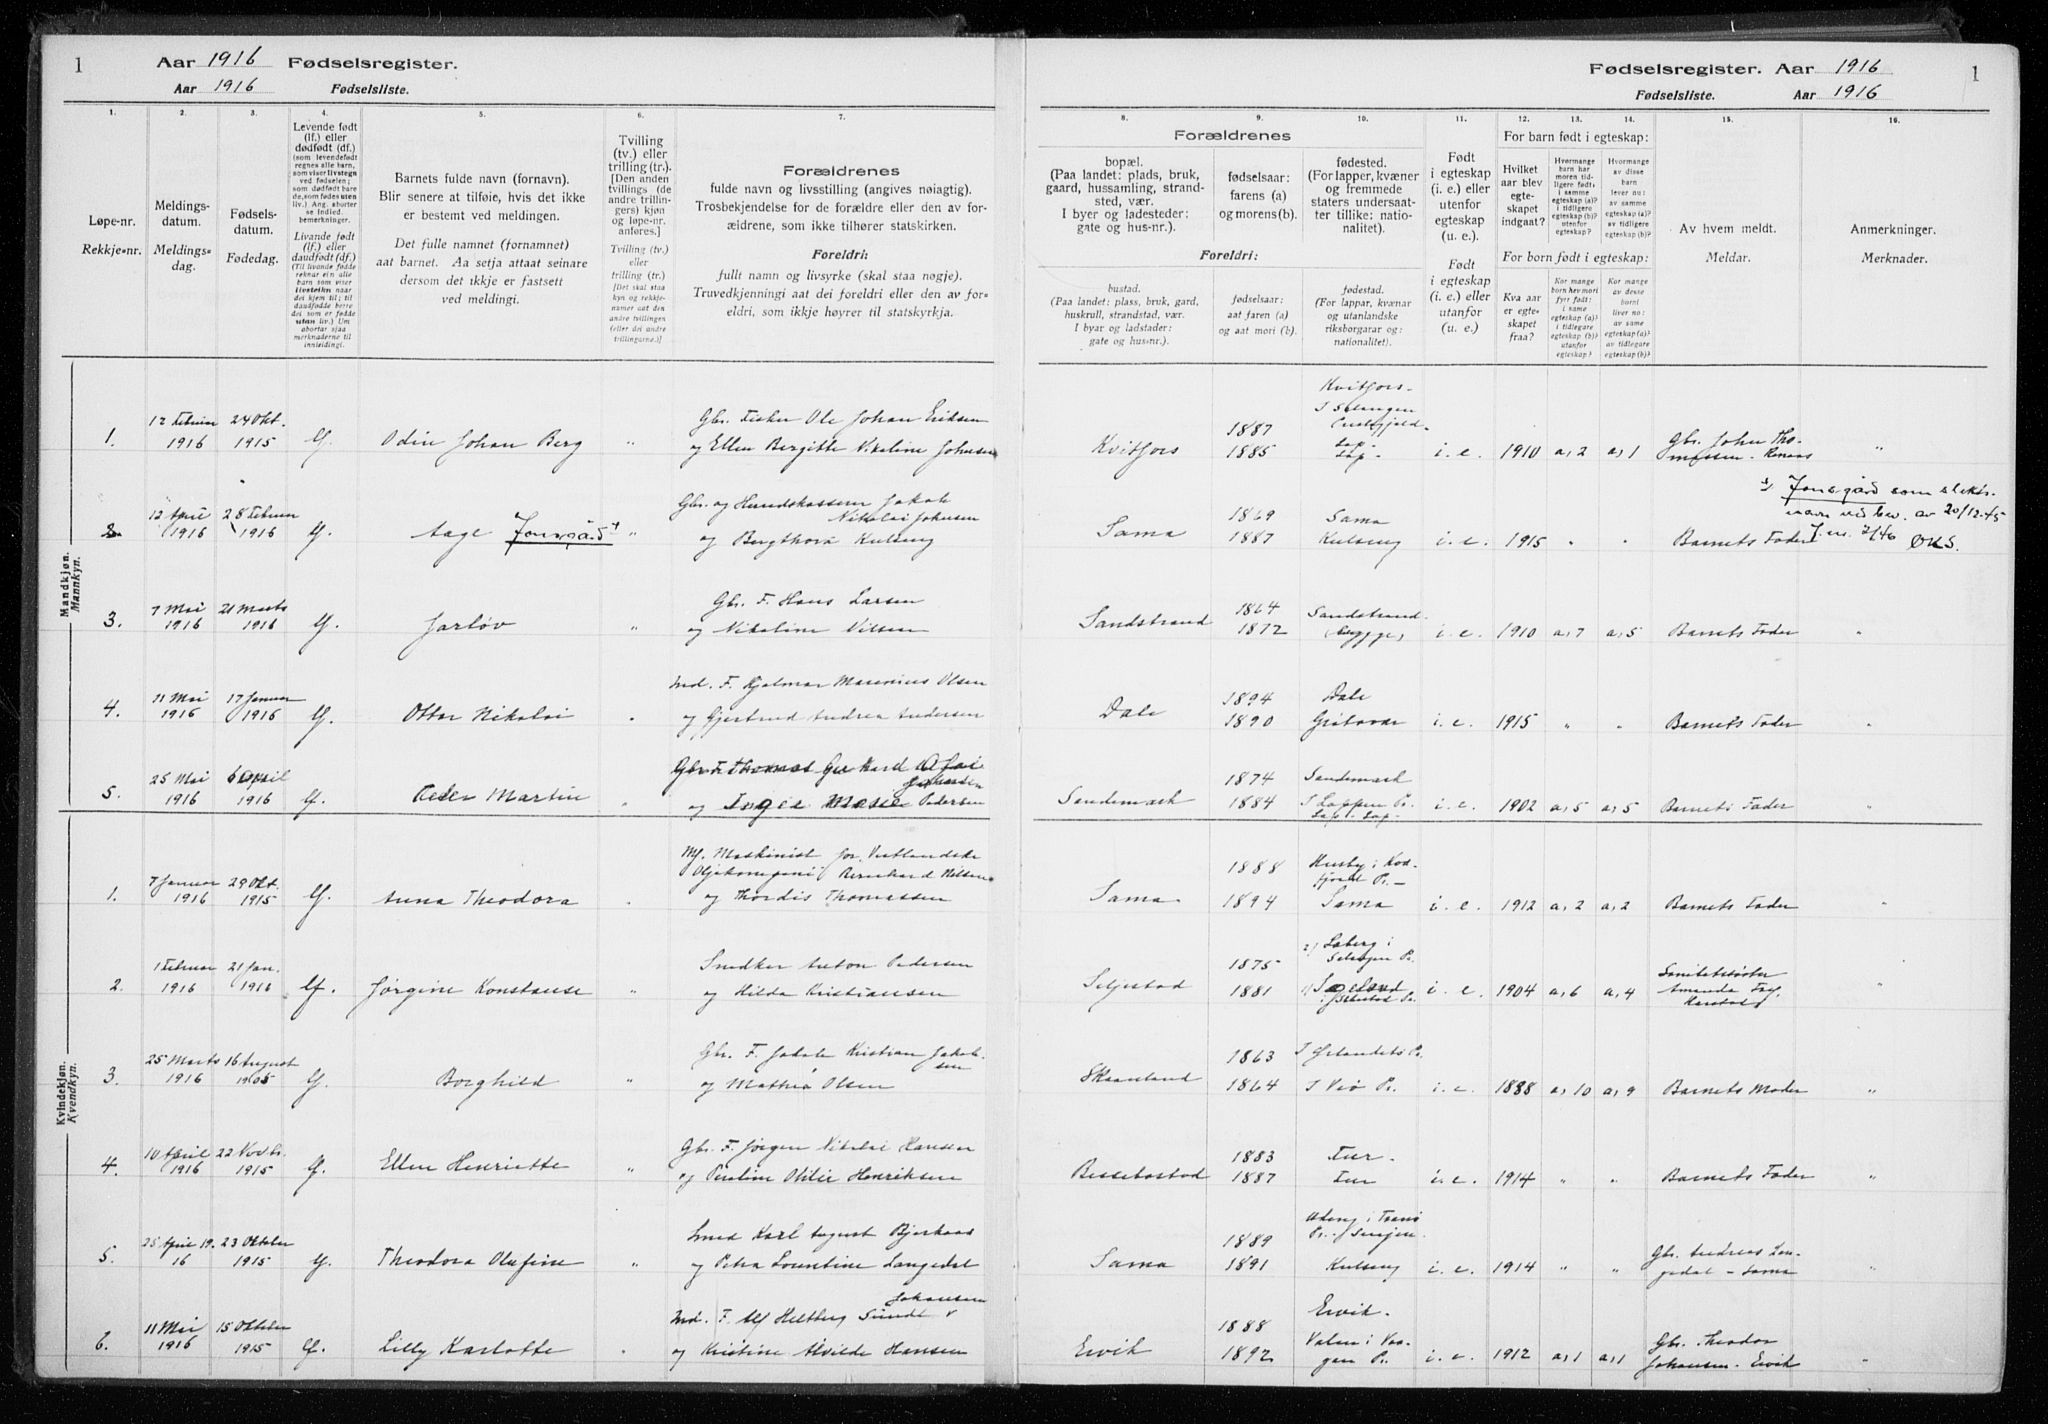 1
Aar 1916 Fødselsregister.
Aar 1916 Fødselsliste.
Fødselsregister. Aar 1916
1
Fødselsliste. Aar 1916
1. 2. 3. 4. 5. 6. 7.
Løpe-nr.
Rekkje-nr.
Meldings-
datum.
Meldings-
dag.
Fødsels-
datum.
Fødedag.
Levende født
(lf.) eller
dødfødt (df.)
(som levendefødt
regnes alle barn,
som viser livstegn
ved fødselen;
som dødfødt bare
de, som fødes uten
liv.) Ang. aborter
se Indled.
bemerkninger.
Livande født
(lf.) eller
daudfødt (df.)
(Til livande fødde
reknar ein alle
barn som viser
livsteikn naar
dei kjem til; til
daudfødde berre
dei som er fødde
utan liv.) Um
abortar sjaa
merknaderne til
innleidingi.
Barnets fulde navn (fornavn).
Blir senere at tilføie, hvis det ikke
er bestemt ved meldingen.
Det fulle namnet (fornamnet)
aat barnet. Aa setja attaat seinare
dersom det ikkje er fastsett
ved meldingi.
Tvilling
(tv.) eller
trilling (tr.).
[Den anden
tvillings (de
andre trillin-
gers) kjøn
og løpe-nr.
anføres.]
Tvilling (tv.)
eller
trilling (tr.)
[Det skal staa
kyn og rekkje-
numer aat den
andre tvillingen
(eller dei andre
trillingarne.)]
Forældrenes
fulde navn og livsstilling (angives nøiagtig).
Trosbekjendelse for de forældre eller den av for-
ældrene, som ikke tilhører statskirken.
Foreldri:
fullt namn og livsyrke (skal staa nøgje).
Truvedkjenningi aat dei foreldri eller den av for-
eldri, som ikkje høyrer til statskyrkja.
8. 9. 10. 11. 12. 13. 14. 15. 16.
Forældrenes
bopæl.
(Paa landet: plads, bruk,
gaard, hussamling, strand-
sted, vær.
I byer og ladesteder:
gate og hus-nr.).
fødselsaar:
farens (a)
og morens(b).
fødested.
(For lapper, kvæner
og fremmede
staters undersaat-
ter tillike: natio-
nalitet).
Foreldri:
bustad.
(Paa landet: plass, bruk, gard,
huskrull, strandstad, vær.
I byar og ladstader:
gate og hus-nr.).
fødselsaar:
aat faren (a)
og aat mori (b).
fødestad.
(For lappar, kvænar
og utanlandske
riksborgarar og:
nationalitet).
Født
i egteskap
(i. e.) eller
utenfor
egteskap
(u. e.).
Født
i egteskap
(i. e.) eller
utanfor
(u. e.).
For barn født i egteskap:
Hvilket
aar blev
egte-
skapet
indgaat?
Hvormange
barn har
moren tid-
ligere født;
i samme
egteskap (a)?
i tidligere
egteskap (b)?
utenfor
egteskap?
Hvormange
av disse
barn
lever nu:
av samme
egteskap (a)?
av tidligere
egteskap (b)?
For born født i egteskap:
Kva aar
er egte-
skapet
fraa?
Kor mange
born hev mori
fyrr født:
i same
egteskap (a)?
i tidlegare
egteskap (b)?
utanfor
egteskap?
Kor mange
av desse
borni
liver no:
av same
egteskap (a)?
av tidlegare
egteskap (b)?
Av hvem meldt.
Meldar.
Anmerkninger.
Merknader.
Mandkjøn.
Mannkyn.
1. 12 Februar 1916 24 Okt. 1915 lf. Odin Johan Berg " Gbr. Fisker Ole Johan Eriksen
og Ellen Bergitte Nikoline Johnsen
Kvitfors 1887 1885 Kvitfors.
I Salangen
Lap. i. e. 1910 a, 2 a, 1 Gbr. John Tho-
massen. Renaas "
2. 12 April 1916 28 Februar 1916 lf. Aage Jonsgård "
Gbr. og Jakob
Nikolai Johnsen
og Bergthora Kulseng
Sama 1869 1887 Sama
Kulseng i. e. 1915 " " Barnets Fader
Jonsgård som slekts-
navn ved bev. av 20/12-45
J.nr. 2/46 ØKS.
3. 7 Mai 1916 21 Marts 1916 lf. Jarløv " Gbr. F. Hans Larsen
og Nikoline Nilsen
Sandstrand 1864 1872 Sandstrand
i. e. 1910 a, 7 a, 5 Barnets Fader "
4. 11 Mai 1916 17 Januar 1916 lf. Ottar Nikolai " Ind. F. Hjalmar Marenius Olsen
og Gjertrud Andrea Andersen
Dale 1894 1890 Dale
i. e. 1915 " " Barnets Fader "
5. 25 Mai 1916 6 April 1916 lf. Peder Martin " Gbr. F. Thomas
Johansen
og Inger Marie Pedersen
Sandemark 1874 1884 Sandemark
Lap - Lap - i. e. 1902 a, 5 a, 5 Barnets Fader "
Kvindekjøn.
Kvendkyn.
1. 7 Januar 1916 29 Okt. 1915 lf. Anna Theodora " Mf. Maskinist for Vestlandske
Oljekompani Bernhard Nilsen
og Thordis Thomassen
Sama 1888 1894 Husby i Kod-
Sama i. e. 1912 a, 2 a, 2 Barnets Fader "
2. 1 Februar 1916 21 Jan. 1916 lf. Jørgine Konstanse " Snedker Anton Pedersen
og Hilda Kristiansen
Seljestad 1875 1881 i. e. 1904 a, 6 a, 4 Sanitetssøster
Amanda
Harstad "
3. 25 Marts 1916 16 August 1905 lf. Borghild " Gbr. F. Jakob Kristian Jakob-
sen
og Mathea Olsen
Skaanland 1863 1864 I Ørlandets Pr.
I Veø Pr. i. e. 1888 a, 10 a, 9 Barnets Moder "
4. 10 April 1916 22 Novbr. 1915 lf. Ellen Henriette " Gbr. F. Jørgen Nikolai Hansen
og Pauline Otilie Henriksen
Bessebostad 1883 1887 i. e. 1914 " " Barnets Fader "
5. 25 April 19. 16 23 Oktober 1915 lf. Theodora Olufine " Smed Karl August Bjerkaas
og Petra Lorentine Langedal
Sama 1889 1891 i Tranø
Pr. / Senjen.
Kulseng i. e. 1914 " " Gbr. Andreas Lan-
gedal - Sama "
6. 11 Mai 1916 15 Oktober 1915 lf. Lilly Karlotte " Johansen
Ind. F. Alf Heltberg Sundt v
og Kristine Alvilde Hansen
Ervik 1888 1892 Ervik.
Valen i Vaa-
gan Pr. i. e. 1912 a, 1 a, 1 Gbr. Theodor
Johansen. Ervik "